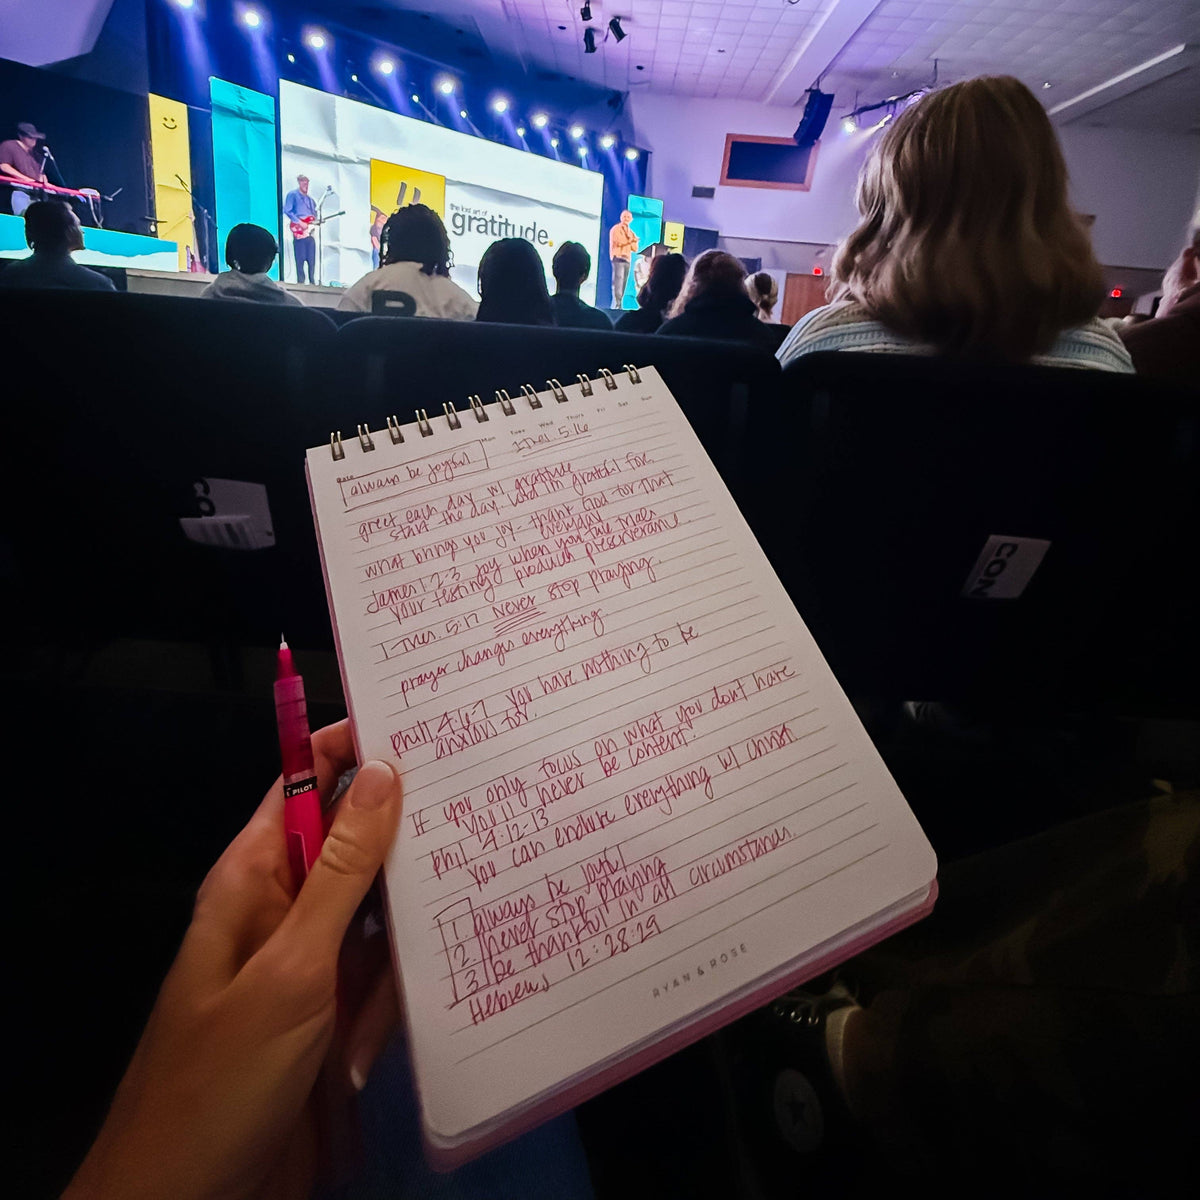 the lost art of
gratitude.
Date
Mon Tues Wed Thurs Fri Sat Sun
always be joyful
1 Thes. 5:16
greet each day w/ gratitude
start the day Lord I'm grateful for
what brings you joy - thank God for that
everyday
James 1:2-3 joy when you
your testing produces
1 Thes. 5:17 Never stop praying.
prayer changes everything.
phil. 4:6-7 you have nothing to be
anxious for.
If you only focus on what you don't have
you'll never be content.
phil. 4:12-13
you can endure everything w/ Christ
1. always be joyful
2. never stop praying
3. be thankful in all circumstances.
Hebrews 12:28:29
RYAN & ROSE
PILOT
CON
CO